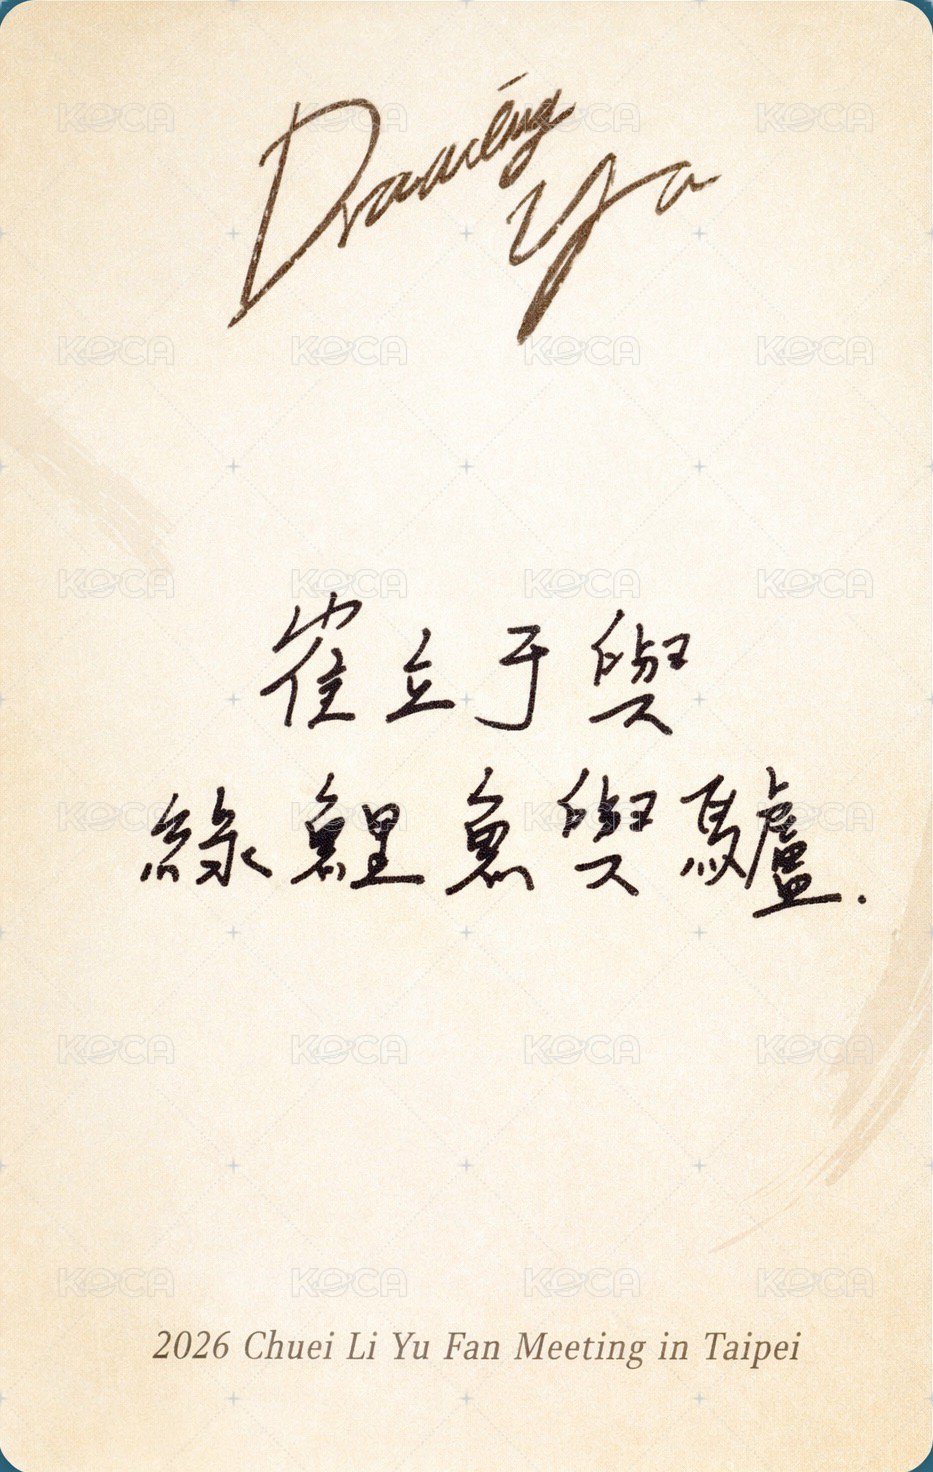 Drawing
Yu
KOCA KOCA KOCA KOCA
KOCA KOCA KOCA KOCA
KOCA KOCA KOCA KOCA
崔立于與
綠鯉魚與驢.
KOCA KOCA KOCA KOCA
KOCA KOCA KOCA KOCA
KOCA KOCA KOCA KOCA
2026 Chuei Li Yu Fan Meeting in Taipei